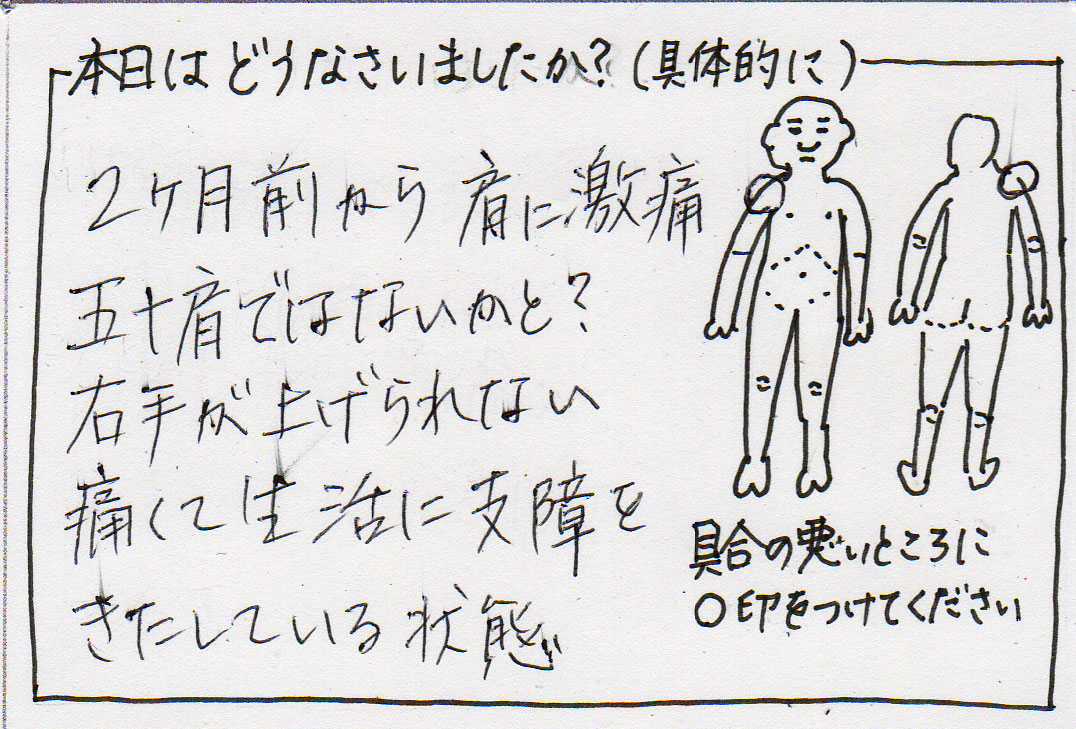 本日はどうなさいましたか?(具体的に)
2ヶ月前から肩に激痛
五十肩ではないかと?
右手が上げられない
痛くて生活に支障を
きたしている状態
具合の悪いところに
○印をつけてください